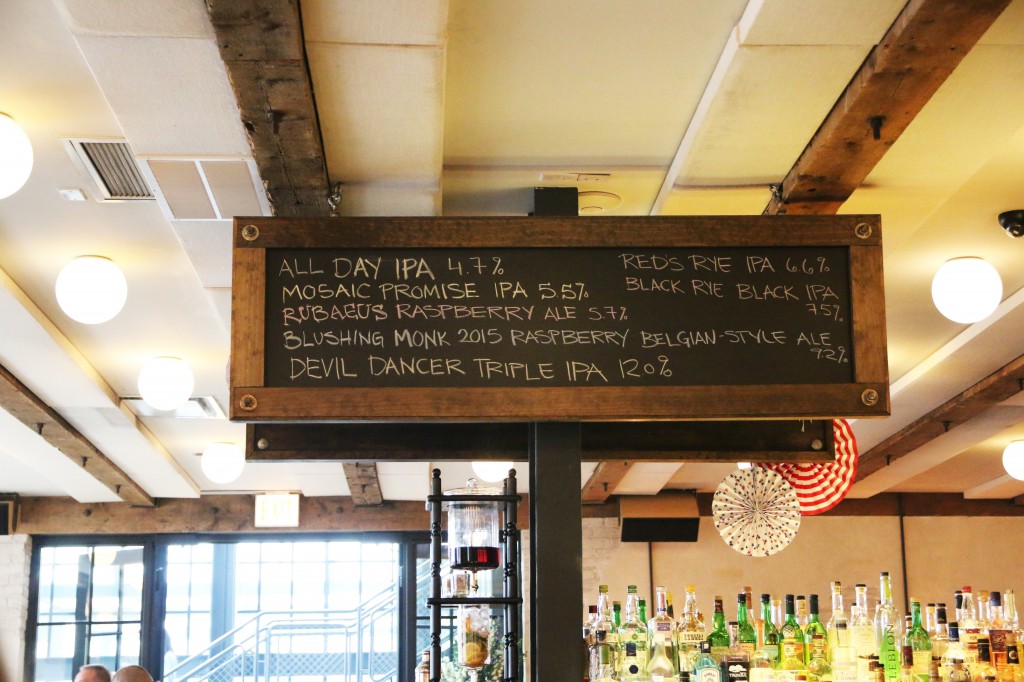 ALL DAY IPA 4.7%
MOSAIC PROMISE IPA 5.5%
RUBAEUS RASPBERRY ALE 5.7%
RED'S RYE IPA 6.6%
BLACK RYE BLACK IPA
7.5%
BLUSHING MONK 2015 RASPBERRY BELGIAN-STYLE ALE
9.2%
DEVIL DANCER TRIPLE IPA 12.0%
EXIT